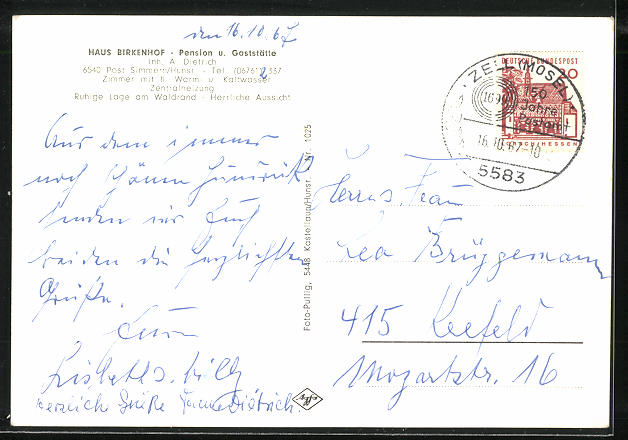 den 16.10.67
HAUS BIRKENHOF - Pension u. Gaststätte
Inh. A. Dietrich
6540 Post Simmern/Hunsr. - Tel. (06761) 2337
Zimmer mit fl. Warm- u. Kaltwasser
Zentralheizung
Ruhige Lage am Waldrand - Herrliche Aussicht
Aus dem immer
noch schönen Hunsrück
senden wir Euch
beiden die herzlichsten
Grüße.
Eure
Lisbeth u. Willy
herzliche Grüße Dietrich
Foto-Pullig, 5448 Kastellaun/Hunsr. Nr. 1025
Agfa
DEUTSCHE BUNDESPOST
LORSCH/HESSEN
ZELL (MOSEL)
150
Jahre
Postamt
16.10.67-10
5583
Herrn u. Frau
Leo Brüggemann
415 Krefeld
Mozartstr. 16